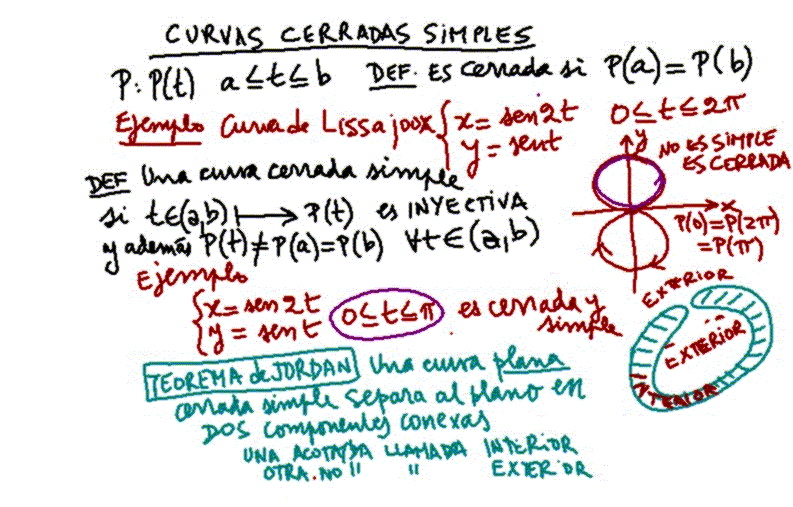 CURVAS CERRADAS SIMPLES
P: P(t) a ≤ t ≤ b DEF. ES cerrada si P(a) = P(b)
Ejemplo Curva de Lissajoux { x = sen 2t 0 ≤ t ≤ 2π
y = sen t
y
NO ES SIMPLE
ES CERRADA
x
P(0) = P(2π)
= P(π)
DEF Una curva cerrada simple
si t ∈ (a,b) ⟼ P(t) es INYECTIVA
y además P(t) ≠ P(a) = P(b) ∀t ∈ (a,b)
Ejemplo
{ x = sen 2t 0 ≤ t ≤ π es cerrada y
y = sen t simple
EXTERIOR
EXTERIOR
INTERIOR
TEOREMA de JORDAN Una curva plana
cerrada simple separa al plano en
DOS componentes conexas
UNA ACOTADA LLAMADA INTERIOR
OTRA NO " " EXTERIOR